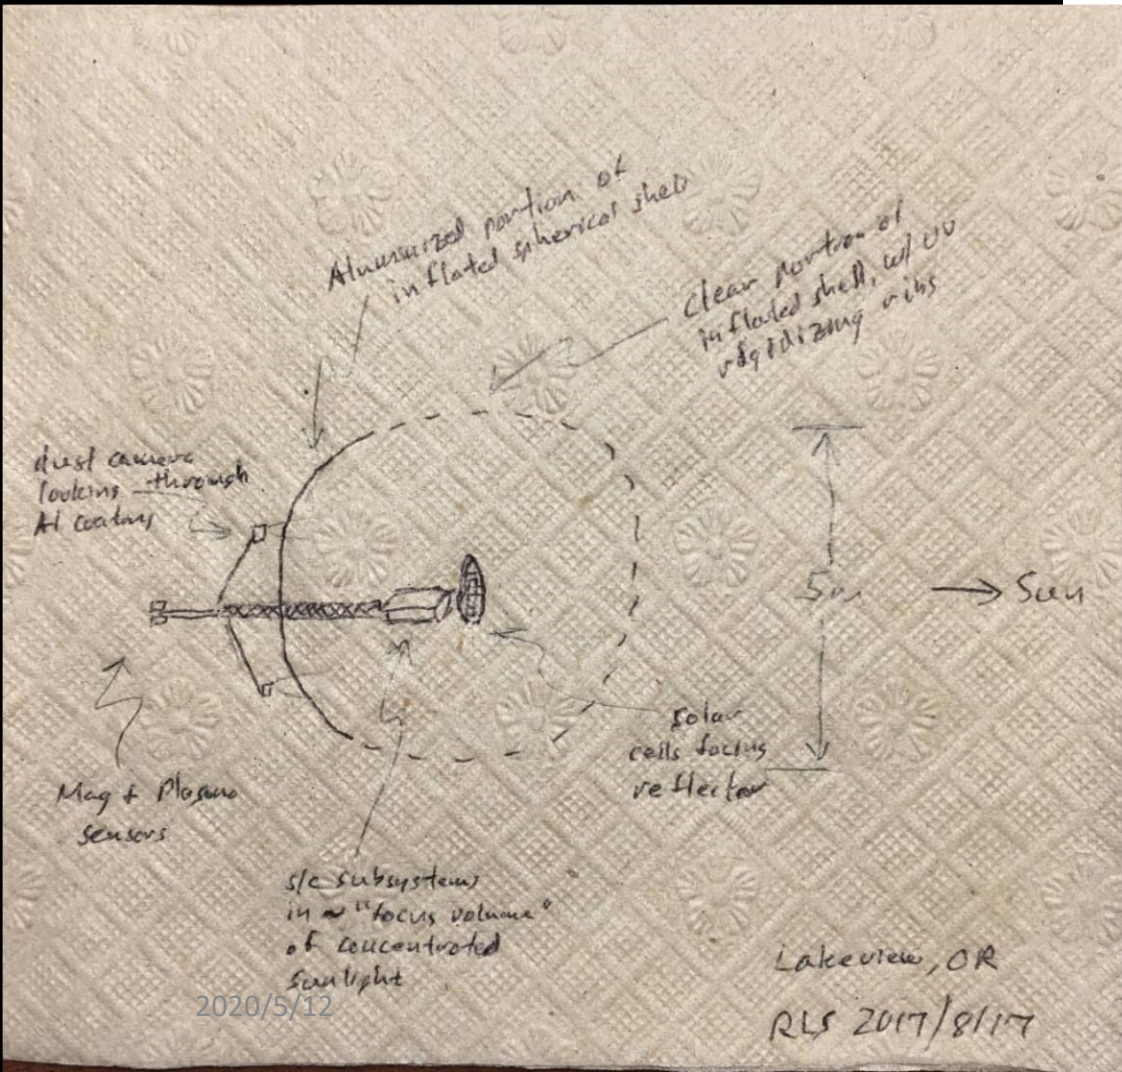 Aluminized portion of
inflated spherical shell
clear portion of
inflated shell, w/ UV
rigidizing ribs
dust camera
looking through
Al coating
5m
→ Sun
solar
cells facing
reflector
Mag + Plasma
sensors
s/c subsystems
in ~ "focus volume"
of concentrated
sunlight
2020/5/12
Lakeview, OR
RLS 2017/8/17